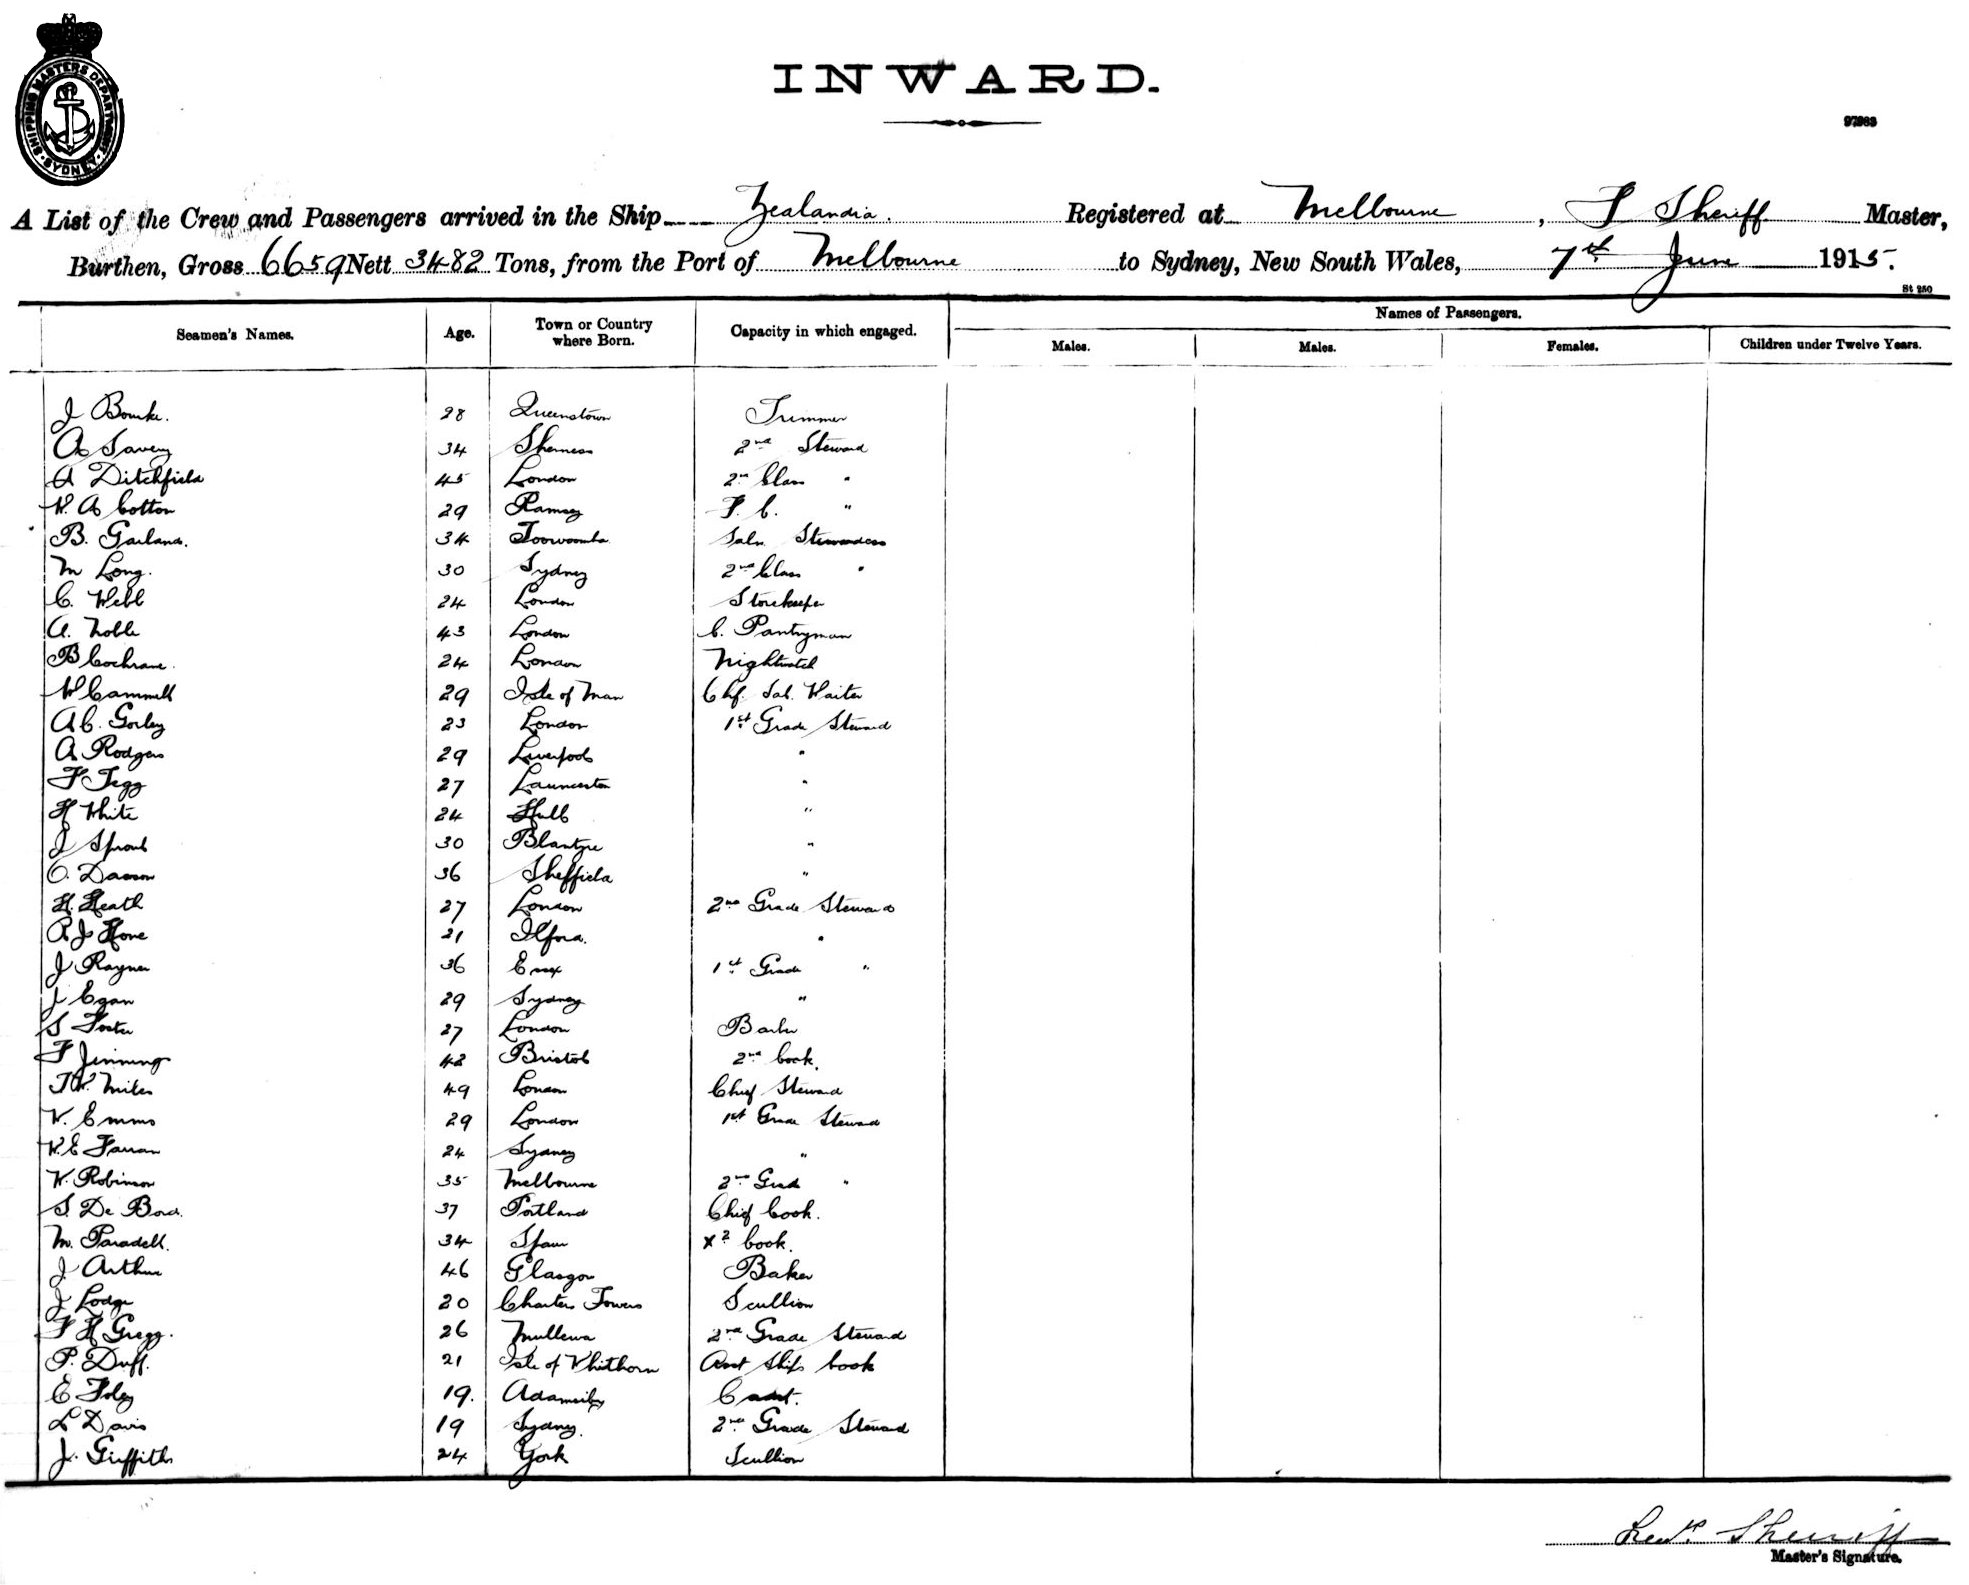 SHIPPING MASTERS DEPARTMENT · SYDNEY ·
INWARD.
A List of the Crew and Passengers arrived in the Ship Zealandia. Registered at Melbourne, F Sheriff Master,
Burthen, Gross 6659 Nett 3482 Tons, from the Port of Melbourne to Sydney, New South Wales, 7th June 1915.
St 250
Seamen's Names. Age. Town or Country where Born. Capacity in which engaged. Names of Passengers.
Males. Males. Females. Children under Twelve Years.
J Bourke. 28 Queenstown Trimmer
A Savery 34 Sheerness 2nd Steward
A Ditchfield 45 London 2nd Class "
W. A Cotton 29 Ramsey F. C. "
B. Garland. 34 Toowoomba Saln Stewardess
M Long. 30 Sydney 2nd Class "
C. Webb 24 London Storekeeper
A. Noble 43 London C. Pantryman
B Cochrane. 24 London Nightwatch
W Cammell 29 Isle of Man Chf. Sal. Waiter
A C. Gorley 23 London 1st Grade Steward
A Rodgers 29 Liverpool "
F Tegg 27 Launceston "
H White 24 Hull "
J Sproul 30 Blantyre "
O. Dawson 36 Sheffield "
H. Heath 27 London 2nd Grade Steward
R J Hone 21 Ilford. "
J Rayner 36 Essex 1st Grade "
J Egan 29 Sydney "
S Foster 27 London Barber
F Jennings 42 Bristol 2nd Cook.
T W. Miles 49 London Chief Steward
W. Emms 29 London 1st Grade Steward
W. E Farran 24 Sydney "
W. Robinson 35 Melbourne 2nd Grade "
S. De Bord. 37 Portland Chief Cook.
M. Paradell. 34 Spain x 2 Cook.
J Arthur 46 Glasgow Baker
J Lodge 20 Charters Towers Scullion
F H Gregg. 26 Mullewa 2nd Grade Steward
P. Duff. 21 Isle of Whithorn Asst Ships Cook
E Foley 19. Cadet.
L Davis 19 Sydney. 2nd Grade Steward
J. Griffiths 24 York Scullion
Sheriff
Master's Signature.